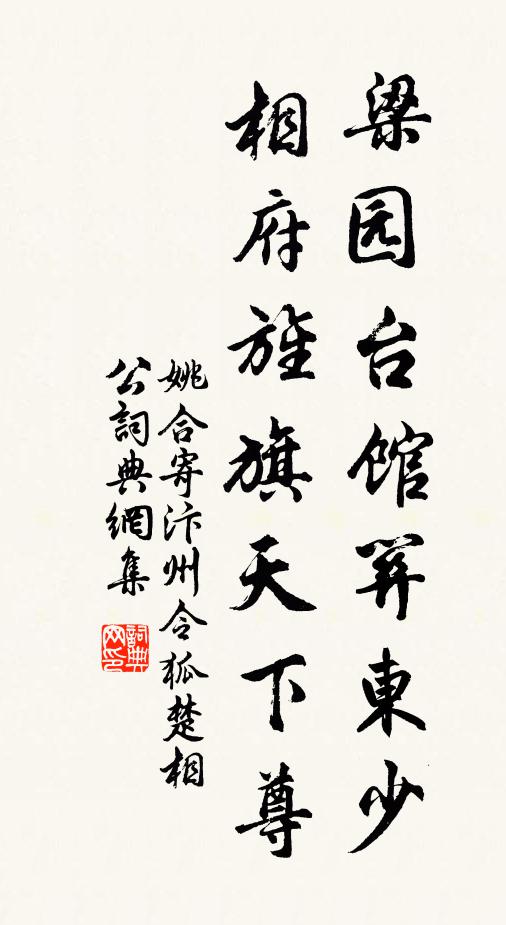 梁园台馆关东少
相府旌旗天下尊
姚合寄汴州令狐楚相
公詞典網集
詞典
网印